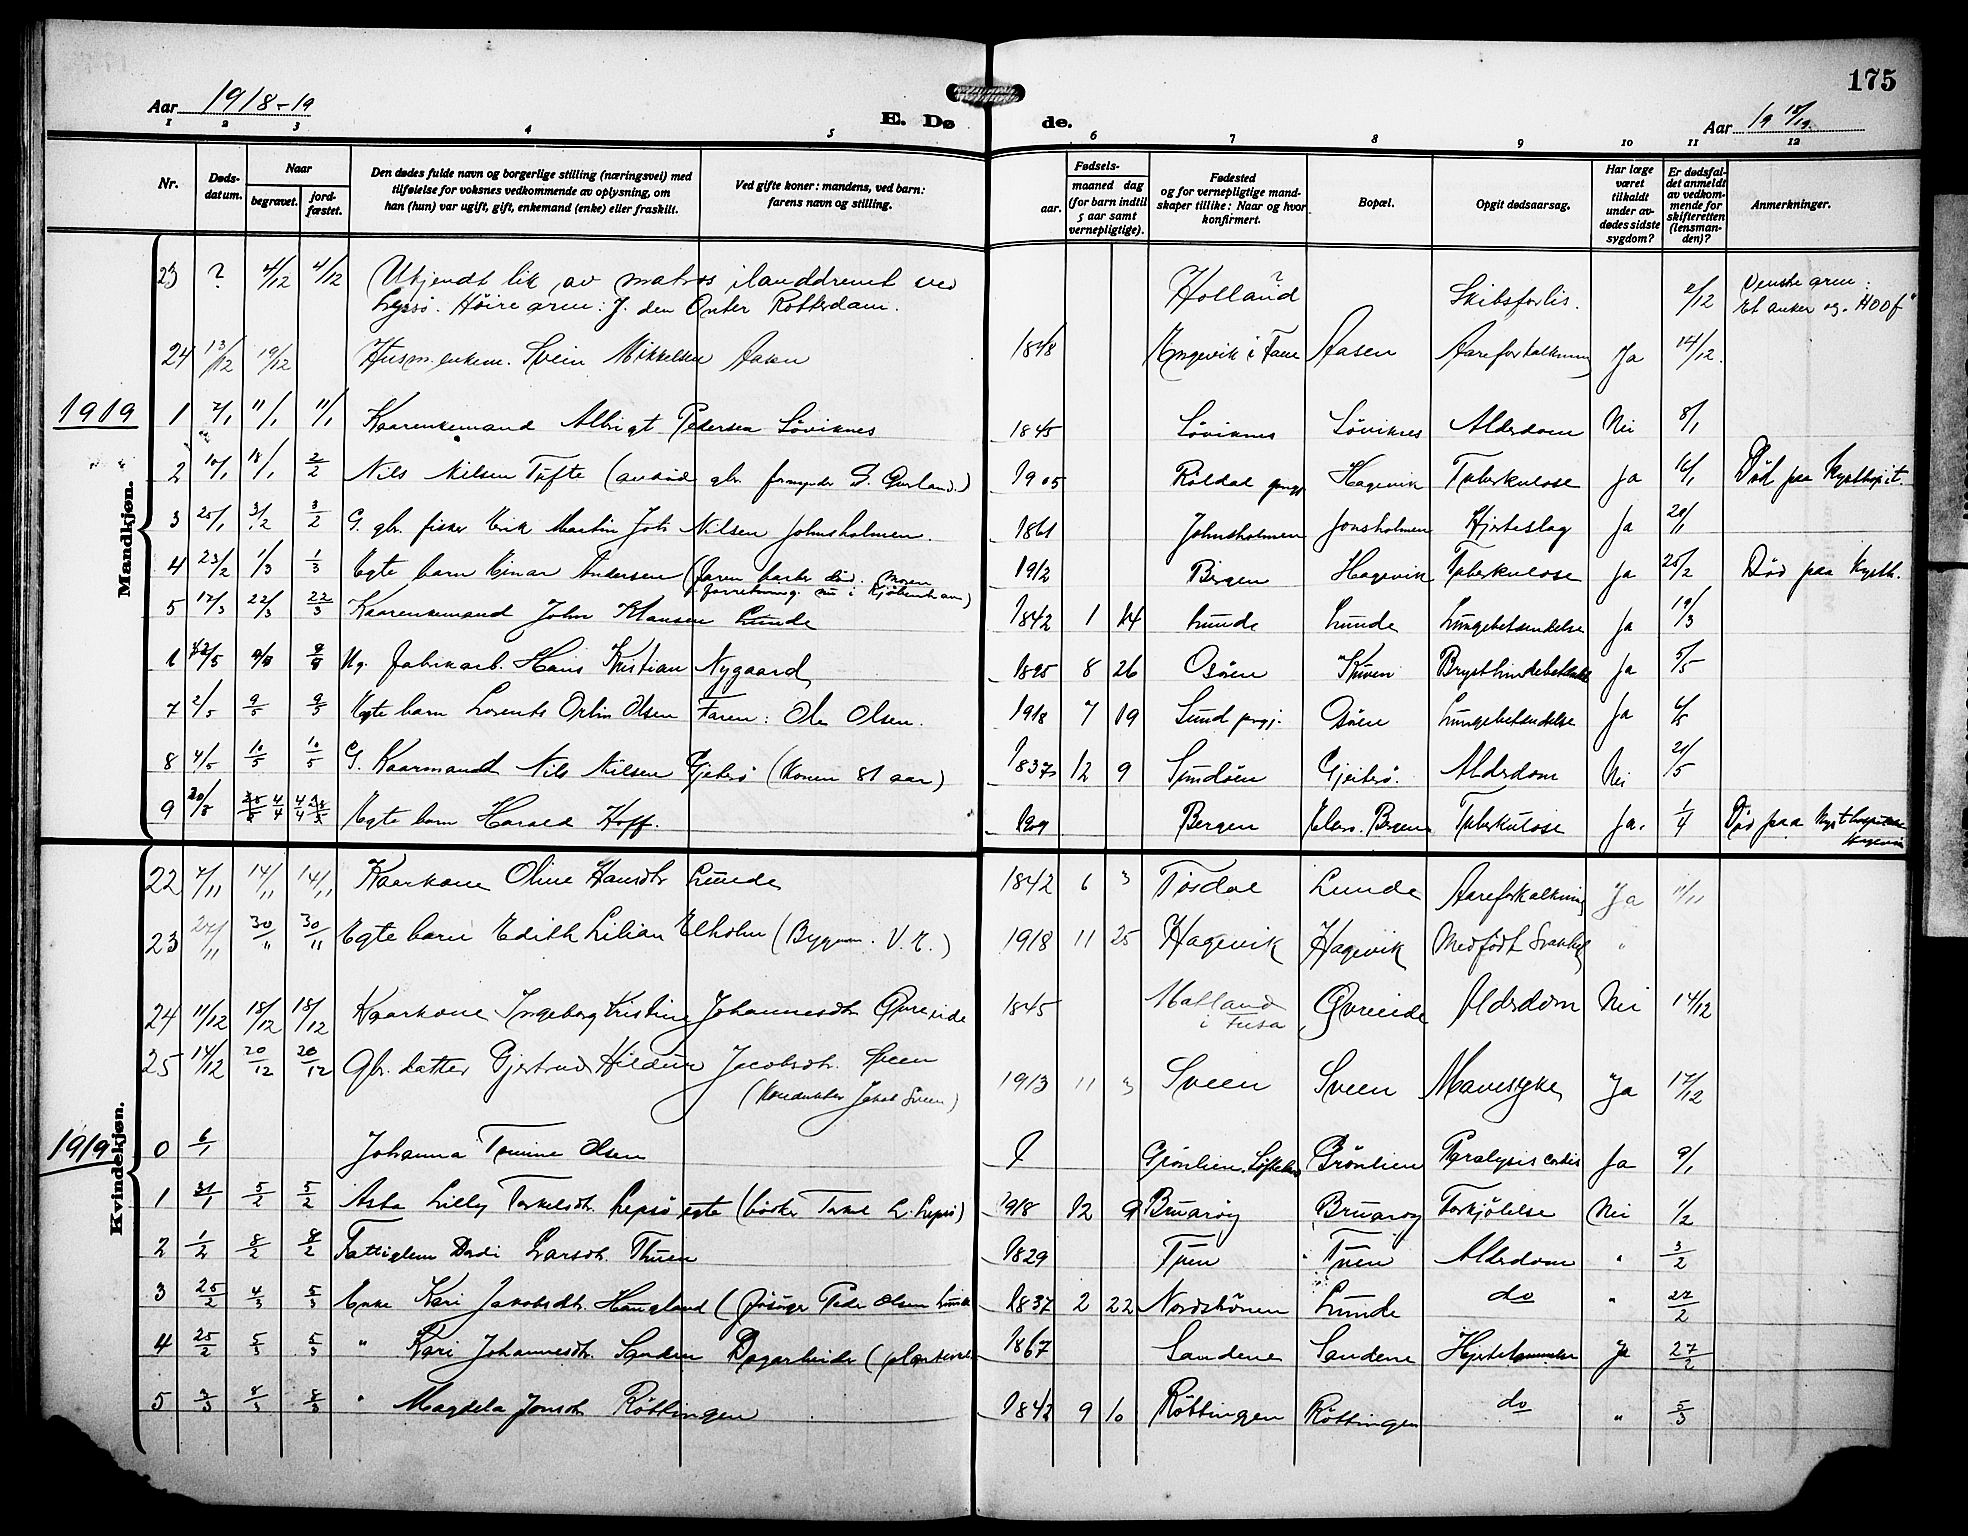 175
Aar 1918-19
E. Dø
de.
Aar 19 18/19.
1 2 3 4 5 6 7 8 9 10 11 12
Nr.
Døds-
datum.
Naar
begravet.
jord-
fæstet.
Den dødes fulde navn og borgerlige stilling (næringsvei) med
tilføielse for voksnes vedkommende av oplysning, om
han (hun) var ugift, gift, enkemand (enke) eller fraskilt.
Ved gifte koner: mandens, ved barn:
farens navn og stilling.
Fødsels-
aar.
maaned dag
(for barn indtil
5 aar samt
vernepligtige).
Fødested
og for vernepligtige mand-
skaper tillike: Naar og hvor
konfirmert.
Bopæl.
Opgit dødsaarsag.
Har læge
været
tilkaldt
under av-
dødes sidste
sygdom?
Er dødsfal-
det anmeldt
av vedkom-
mende for
skifteretten
(lensman-
den)?
Anmerkninger.
Mandkjøn.
23 ? 4/12 4/12 Ukjendt lik av matros ilanddrevet ved Holland ? Skibsforlis. 2/12 Venstre arm:
Lepsø. Høire arm: J. den Outer Rotterdam. Et anker og. HOOF"
24 13/12 19/12 Husm. enkem. Svein Mikkelsen Aasen 1848 Engevik i Fane Aasen Aareforkalkning Ja 14/12.
1919
1 7/1 11/1 11/1 Kaarenkemand Albrigt Pedersen Søviknes 1845 Søviknes Søviknes Alderdom Nei 8/1
2 10/1 18/1 2/2 Nils Nilsen Tufte 1905 Røldal prgj Hagevik Tuberkulose Ja 16/1 Død paa Kysthospit.
3 25/1 3/2 3/2 G. gbr. fisker Erik Martin Joh. Nilsen Johnsholmen. 1861 Johnsholmen Jonsholmen Hjerteslag Ja 20/1
4 23/2 1/3 1/3 Egte barn Einar Andersen (Faren barber død. Moren 1912 Bergen Hagevik Tuberkulose Ja 25/2 Død paa Kysth.
forretning. nu i Kjøbenhavn)
5 17/3 22/3 22/3 Kaarenkemand John Klausen Lunde 1842 1 14 Lunde Lunde Lungebetændelse Ja 19/3
Ug. fabrikarb. Hans Kristian Nygaard 1895 8 26 Osøren Kuven Ja 5/5
7 2/5 9/5 9/5 Egte barn Lorents Olsen Faren: Ole Olsen. 1918 7 19 Sund prgj. Osøren Lungebetændelse Ja
8 4/5 10/5 10/5 G. Kaarmand Nils Nilsen Gjeitesø (Konen 81 aar) 1837 12 9 Sundøen Gjeitesø. Alderdom Nei 20/5
9 Egte barn Harald Hoff. 1909 Bergen Bergen Tuberkulose Ja. 1/4 Død paa Kysthospitalet
Hagevik
Kvindekjøn.
22 7/11 14/11 14/11 Kaarkone Oline Hansdtr Lunde 1842 6 3 Tøsdal Lunde Aareforkalkning Ja 11/11
23 27/11 30/11 30/11 Egte barn Edith Lilian Elholm (Bygm. V. E.) 1918 11 25 Hagevik Hagevik Medfødt Svakhet "
24 11/12 18/12 18/12 Kaarkone Ingeborg Kristine Johannesdtr Øvreeide 1845 Malland Øvreeide Alderdom Nei 14/12
i Fusa
25 14/12 20/12 20/12 Gbr. datter Gjertrud Hildur Jacobsdtr. Sveen 1913 11 3 Sveen Sveen Mavesyke Ja 17/12
(Konduktør Jakob Sveen)
1919
0 6/1 Johanna Tomine Olsen Grønlien Grønlien Paralysis cordis Ja 9/1
1 31/1 5/2 5/2 Asta Lilly Torkelsdtr. Lepsø, egte (bøker Torkel L. Lepsø) 1918 12 9 Bruarøy Bruarøy Forkjølelse Nei 1/2
2 1/2 8/2 8/2 Fattiglem Dordi Larsdtr. Thuen 1829 Tuen Tuen Alderdom " 3/2
3 25/2 4/3 5/3 Enke Kari Jakobsdtr. Haugland (Peder Olsen Lunde 1837 2 22 Nordstrønen Lunde do " 27/2
4 25/2 5/3 5/3 " Kari Johannesdtr. Sanden Dagarbeider 1867 Sandene Sandene Ja 27/2
5 3/3 8/3 8/3 " Magdela Jonsdtr Røttingen 1842 9 10 Røttingen Røttingen do " 5/3